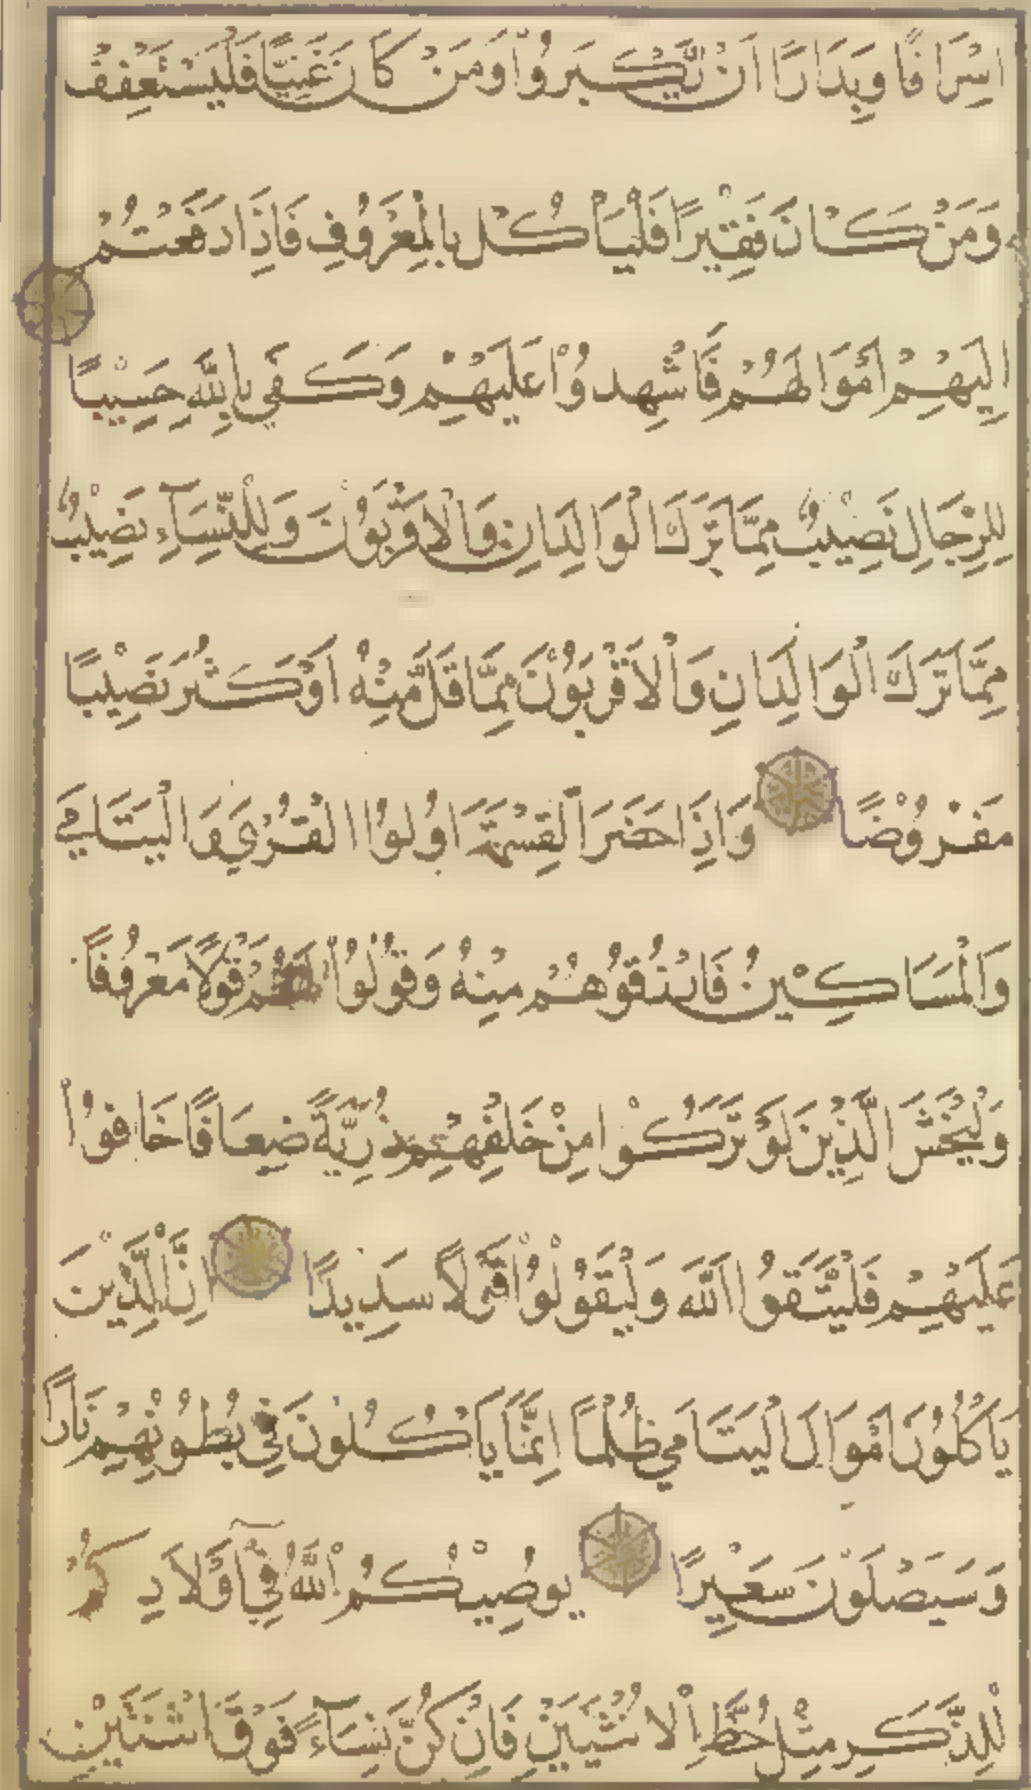 اِسْرَافًا وَبِدَارًا اَنْ يَّكْبَرُوْا وَمَنْ كَانَ غَنِيًّا فَلْيَسْتَعْفِفْ
وَمَنْ كَانَ فَقِيْرًا فَلْيَأْكُلْ بِالْمَعْرُوْفِ فَاِذَا دَفَعْتُمْ
اِلَيْهِمْ اَمْوَالَهُمْ فَاَشْهِدُوْا عَلَيْهِمْ وَكَفٰى بِاللّٰهِ حَسِيْبًا
لِلرِّجَالِ نَصِيْبٌ مِمَّا تَرَكَ الْوَالِدَانِ وَالْاَقْرَبُوْنَ وَلِلنِّسَآءِ نَصِيْبٌ
مِمَّا تَرَكَ الْوَالِدَانِ وَالْاَقْرَبُوْنَ مِمَّا قَلَّ مِنْهُ اَوْ كَثُرَ نَصِيْبًا
مَفْرُوْضًا وَاِذَا حَضَرَ الْقِسْمَةَ اُولُوا الْقُرْبٰى وَالْيَتَامٰى
وَالْمَسَاكِيْنُ فَارْزُقُوْهُمْ مِنْهُ وَقُوْلُوْا لَهُمْ قَوْلًا مَعْرُوْفًا
وَلْيَخْشَ الَّذِيْنَ لَوْ تَرَكُوْا مِنْ خَلْفِهِمْ ذُرِّيَّةً ضِعَافًا خَافُوْا
عَلَيْهِمْ فَلْيَتَّقُوا اللّٰهَ وَلْيَقُوْلُوْا قَوْلًا سَدِيْدًا اِنَّ الَّذِيْنَ
يَاْكُلُوْنَ اَمْوَالَ الْيَتَامٰى ظُلْمًا اِنَّمَا يَاْكُلُوْنَ فِيْ بُطُوْنِهِمْ نَارًا
وَسَيَصْلَوْنَ سَعِيْرًا يُوصِيْكُمُ اللّٰهُ فِيْٓ اَوْلَادِكُمْ
لِلذَّكَرِ مِثْلُ حَظِّ الْاُنْثَيَيْنِ فَاِنْ كُنَّ نِسَآءً فَوْقَ اثْنَتَيْنِ